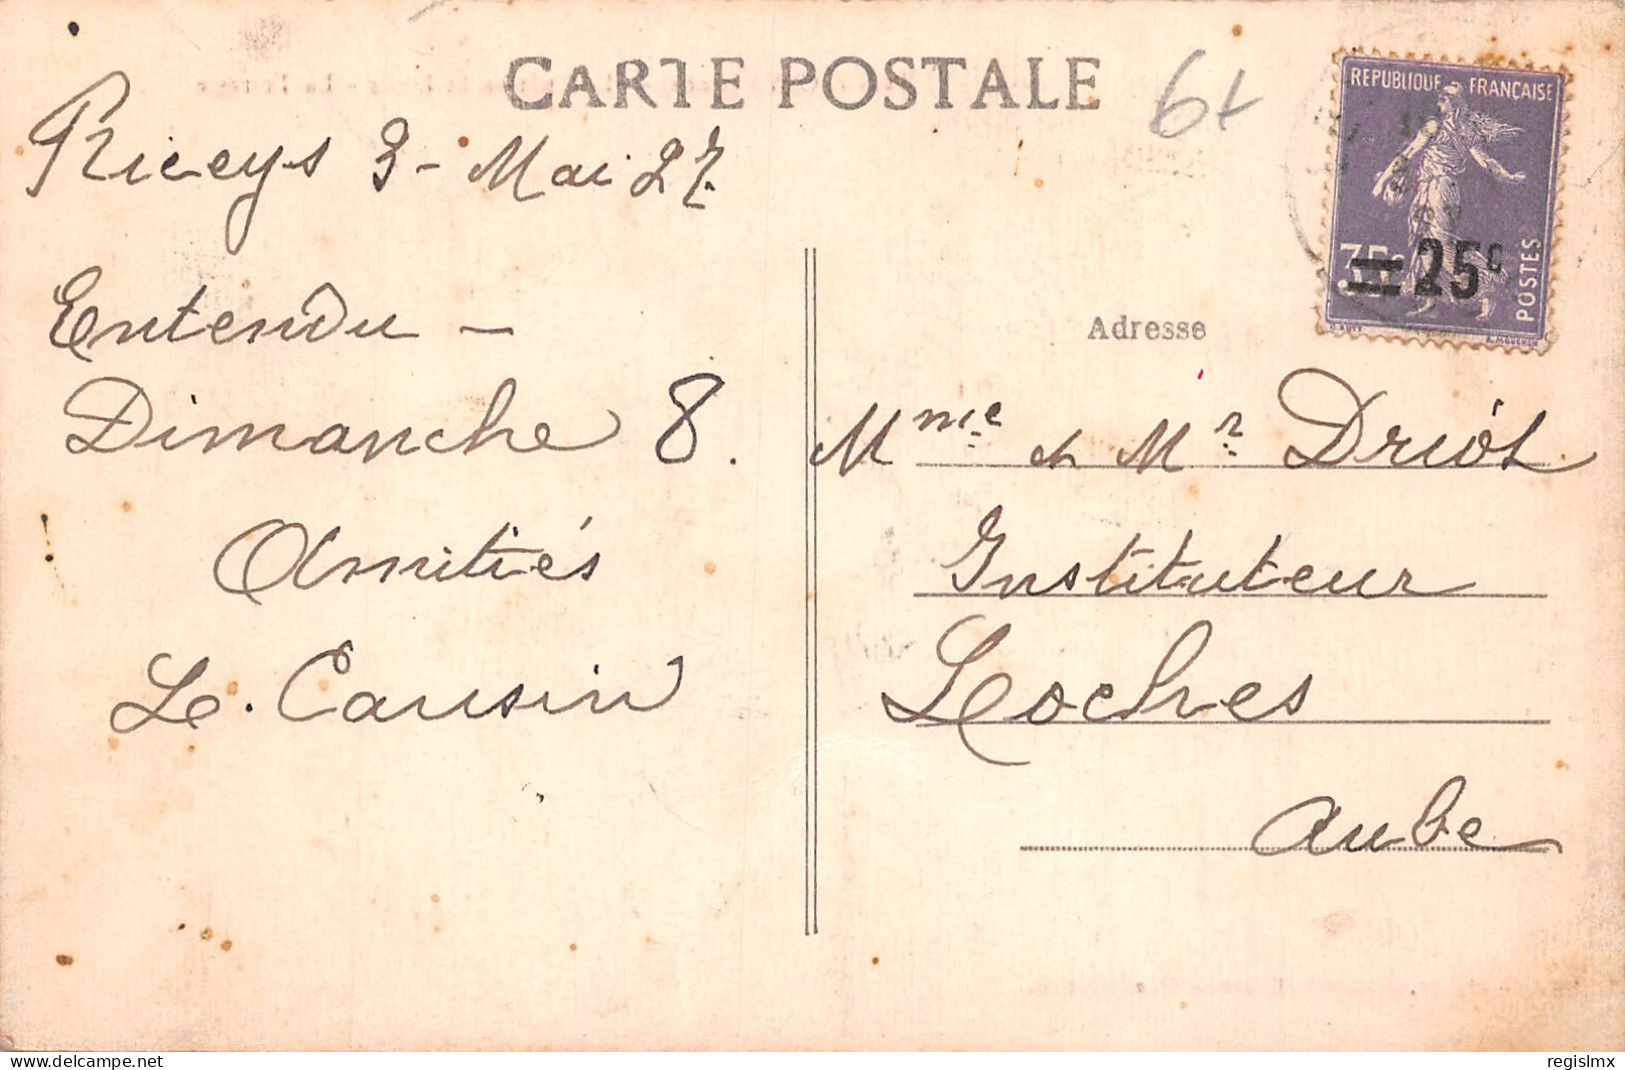 CARTE POSTALE
6t
REPUBLIQUE FRANÇAISE
35c 25c
POSTES
Riceys 3 - Mai 27.
Entendu -
Dimanche 8.
Amitiés
Le. Causin
Adresse
Mme et Mr Driot
Instituteur
Loches
Aube
www.delcampe.net
regislmx